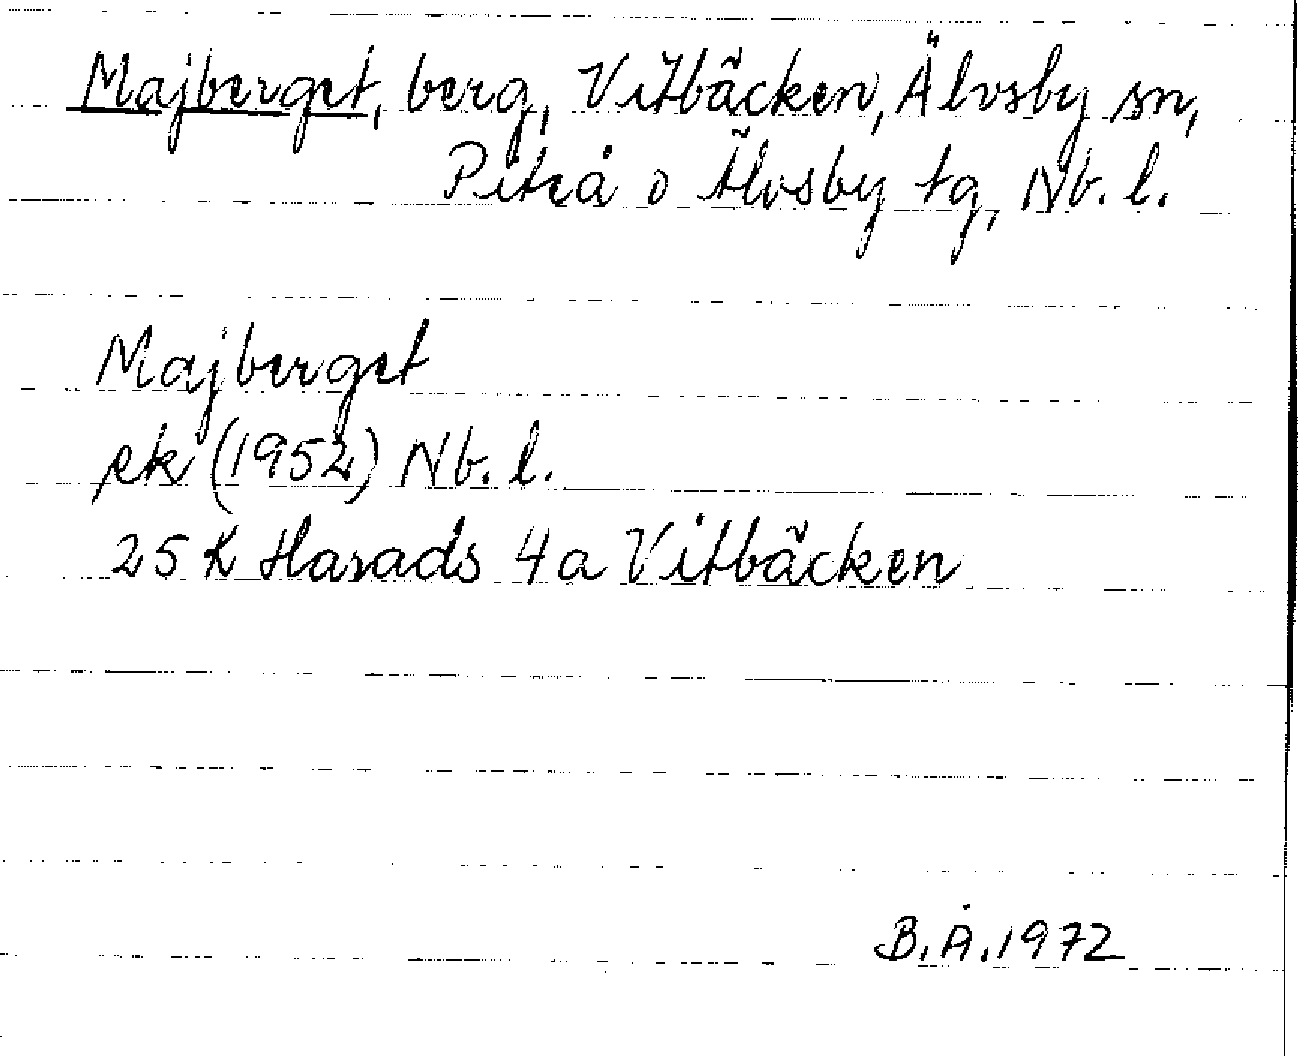 Majberget, berg, Vitbäcken, Älvsby sn,
Piteå o Älvsby tg, Nb. l.
Majberget
ek (1952) Nb. l.
25 K Harads 4a Vitbäcken
B.Å.1972